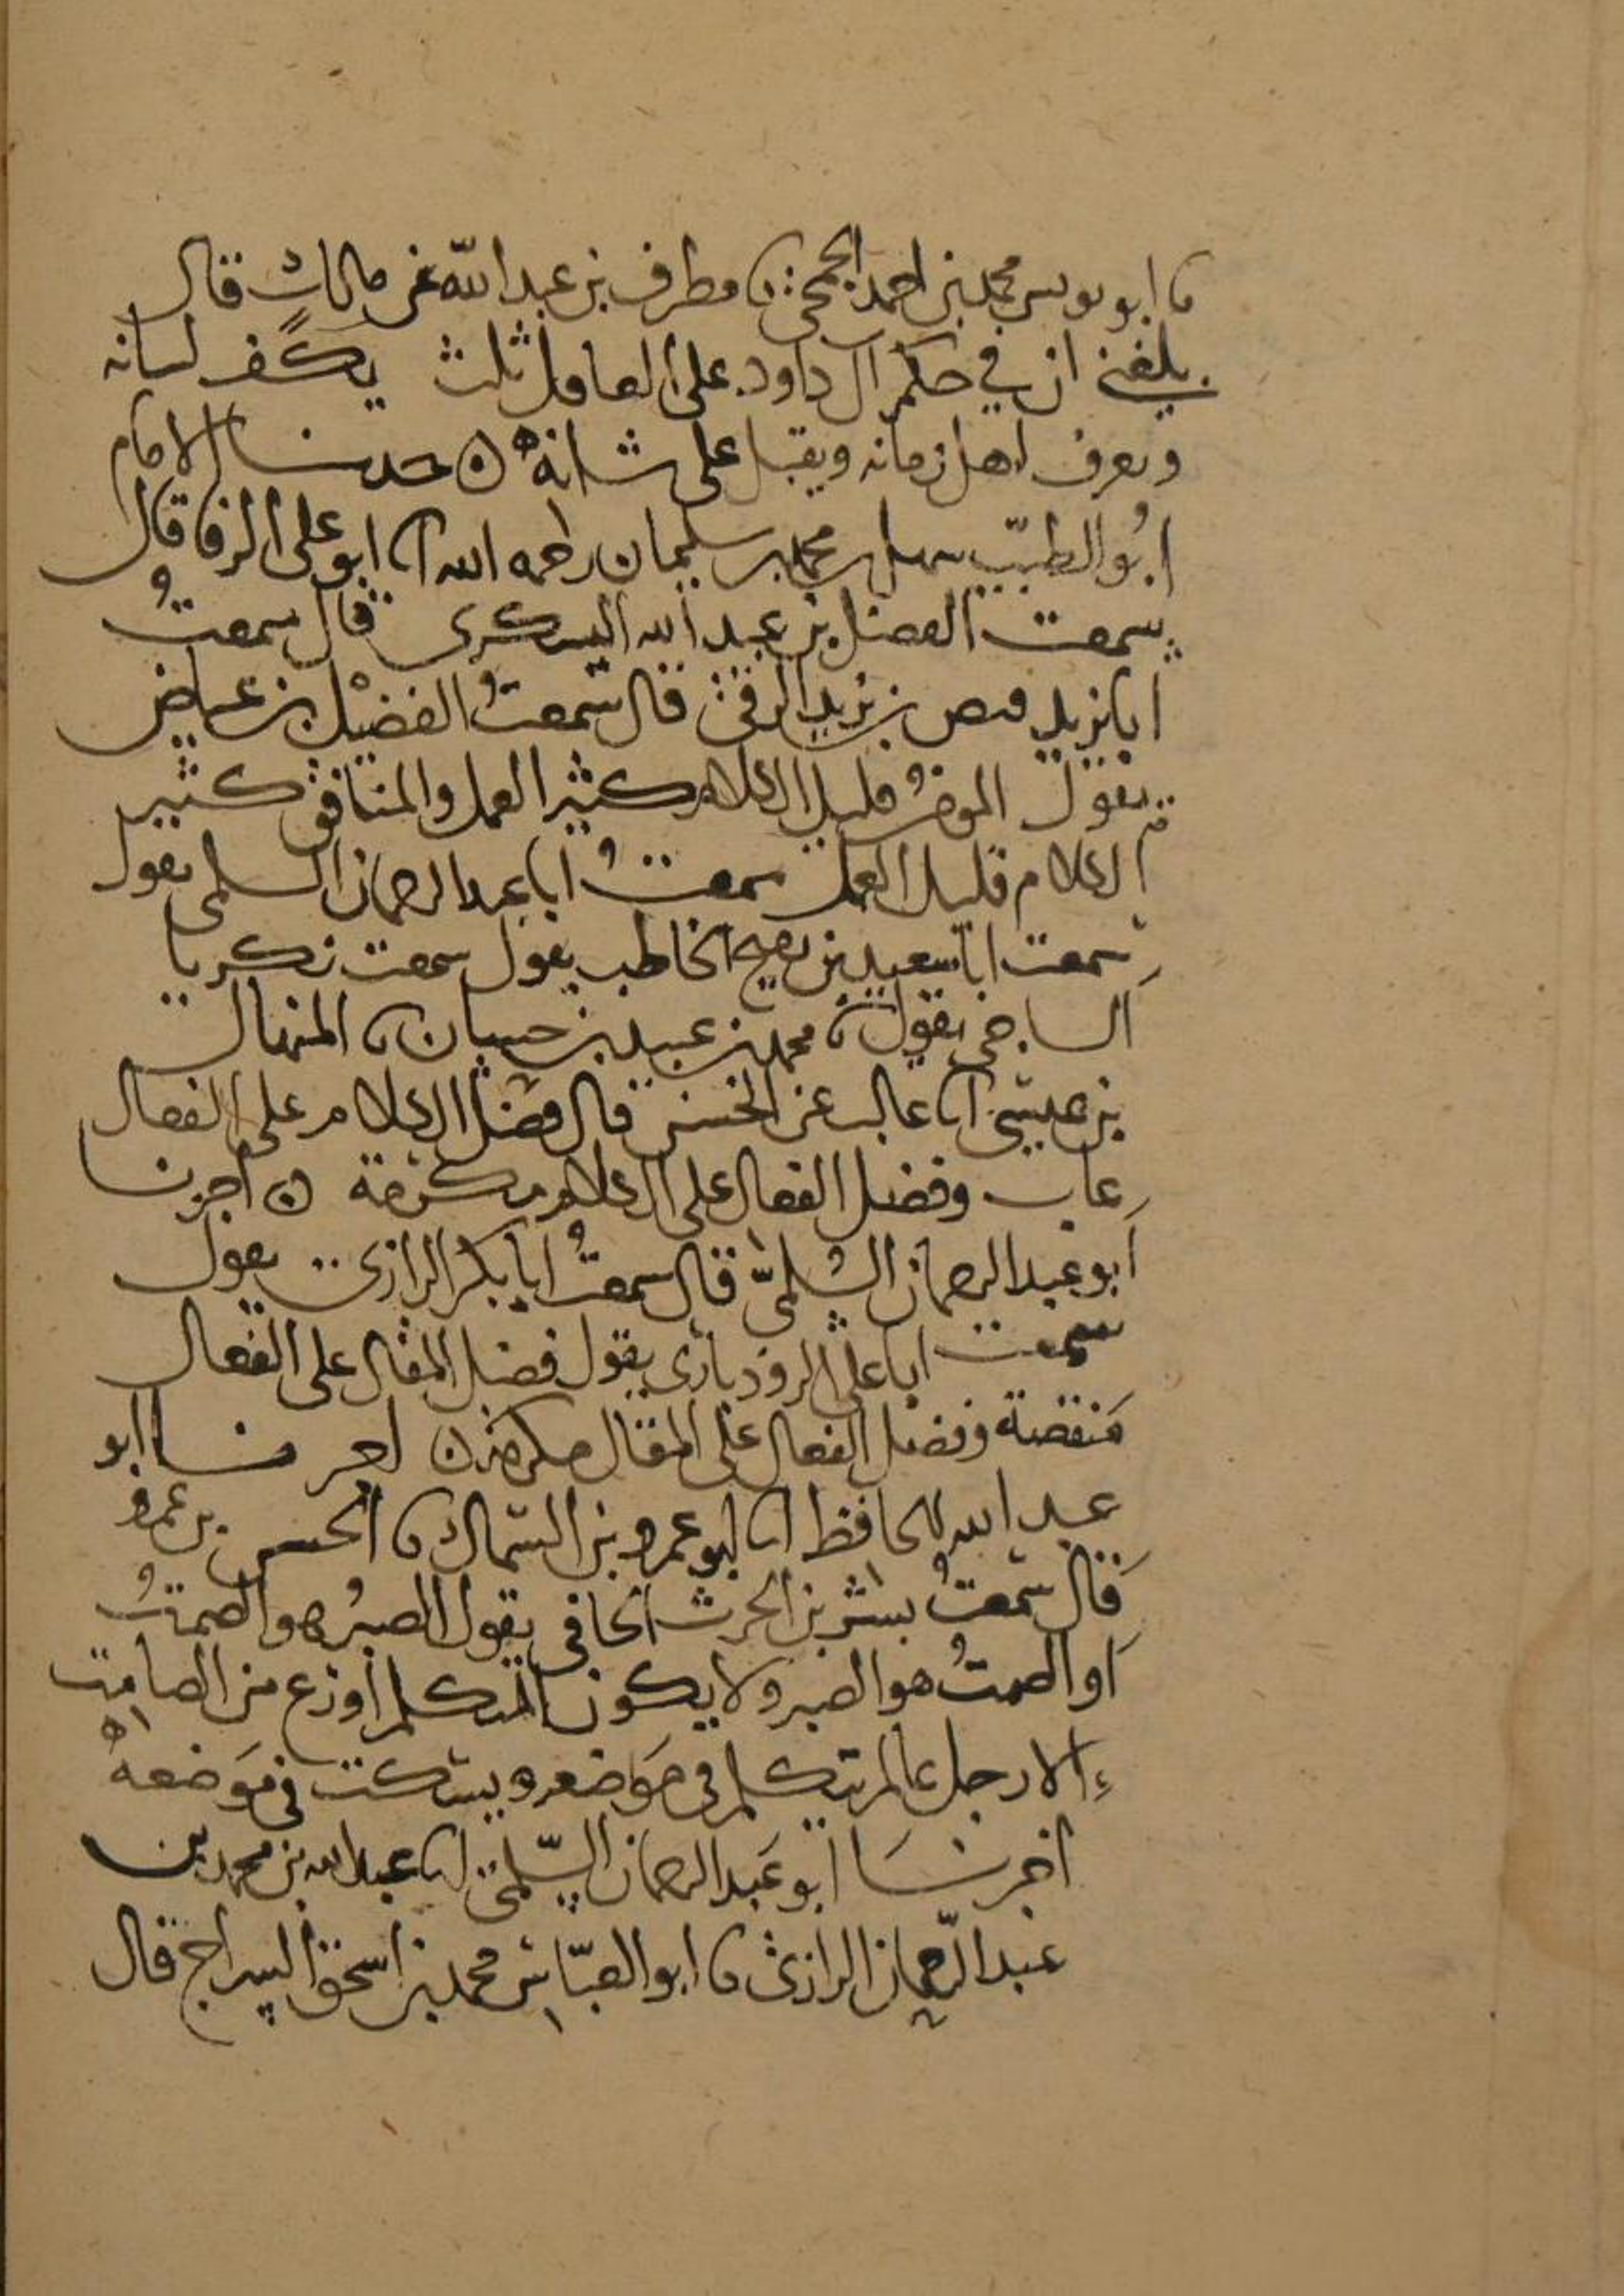 نا ابو يونس محمد بن احمد الجمحي نا مطرف بن عبد الله عن مالك قال
بلغني ان في حكم آل داود على العاقل ثلث يكف لسانه
ويعرف اهل زمانه ويقبل على شانه ه حدثنا الامام
ابو الطيب سهل بن محمد بن سليمان رحمه الله انا ابو علي الرفا قال
سمعت الفضل بن عبد الله اليشكري قال سمعت
ابا يزيد فيض بن يزيد الرقي قال سمعت الفضيل بن عياض
يقول المومن قليل الكلام كثير العمل والمنافق كثير
الكلام قليل العمل سمعت ابا عبد الرحمان السلمي يقول
سمعت ابا سعيد بن رميح الحافظ يقول سمعت زكريا
الساجي يقول نا محمد بن عبيد بن حسان نا المنهال
بن عيسى نا غالب عن الحسن قال فضل الكلام على الفعال
عاب وفضل الفعال على الكلام مكرمة ه اخبرنا
ابو عبد الرحمان السلمي قال سمعت ابا بكر الرازي يقول
سمعت ابا علي الروذباري يقول فضل المقال على الفعال
منقصة وفضل الفعال على المقال مكرمة ه اخبرنا ابو
عبد الله الحافظ انا ابو عمرو بن السماك نا الحسن بن عمرو
قال سمعت بشر بن الحرث الحافي يقول الصبر هو الصمت
او الصمت هو الصبر ولا يكون المتكلم اورع من الصامت
الا رجل عالم يتكلم في موضعه ويسكت في موضعه
اخبرنا ابو عبد الرحمان السلمي انا عبد الله بن محمد بن
عبد الرحمان الرازي نا ابو العباس محمد بن اسحق السراج قال